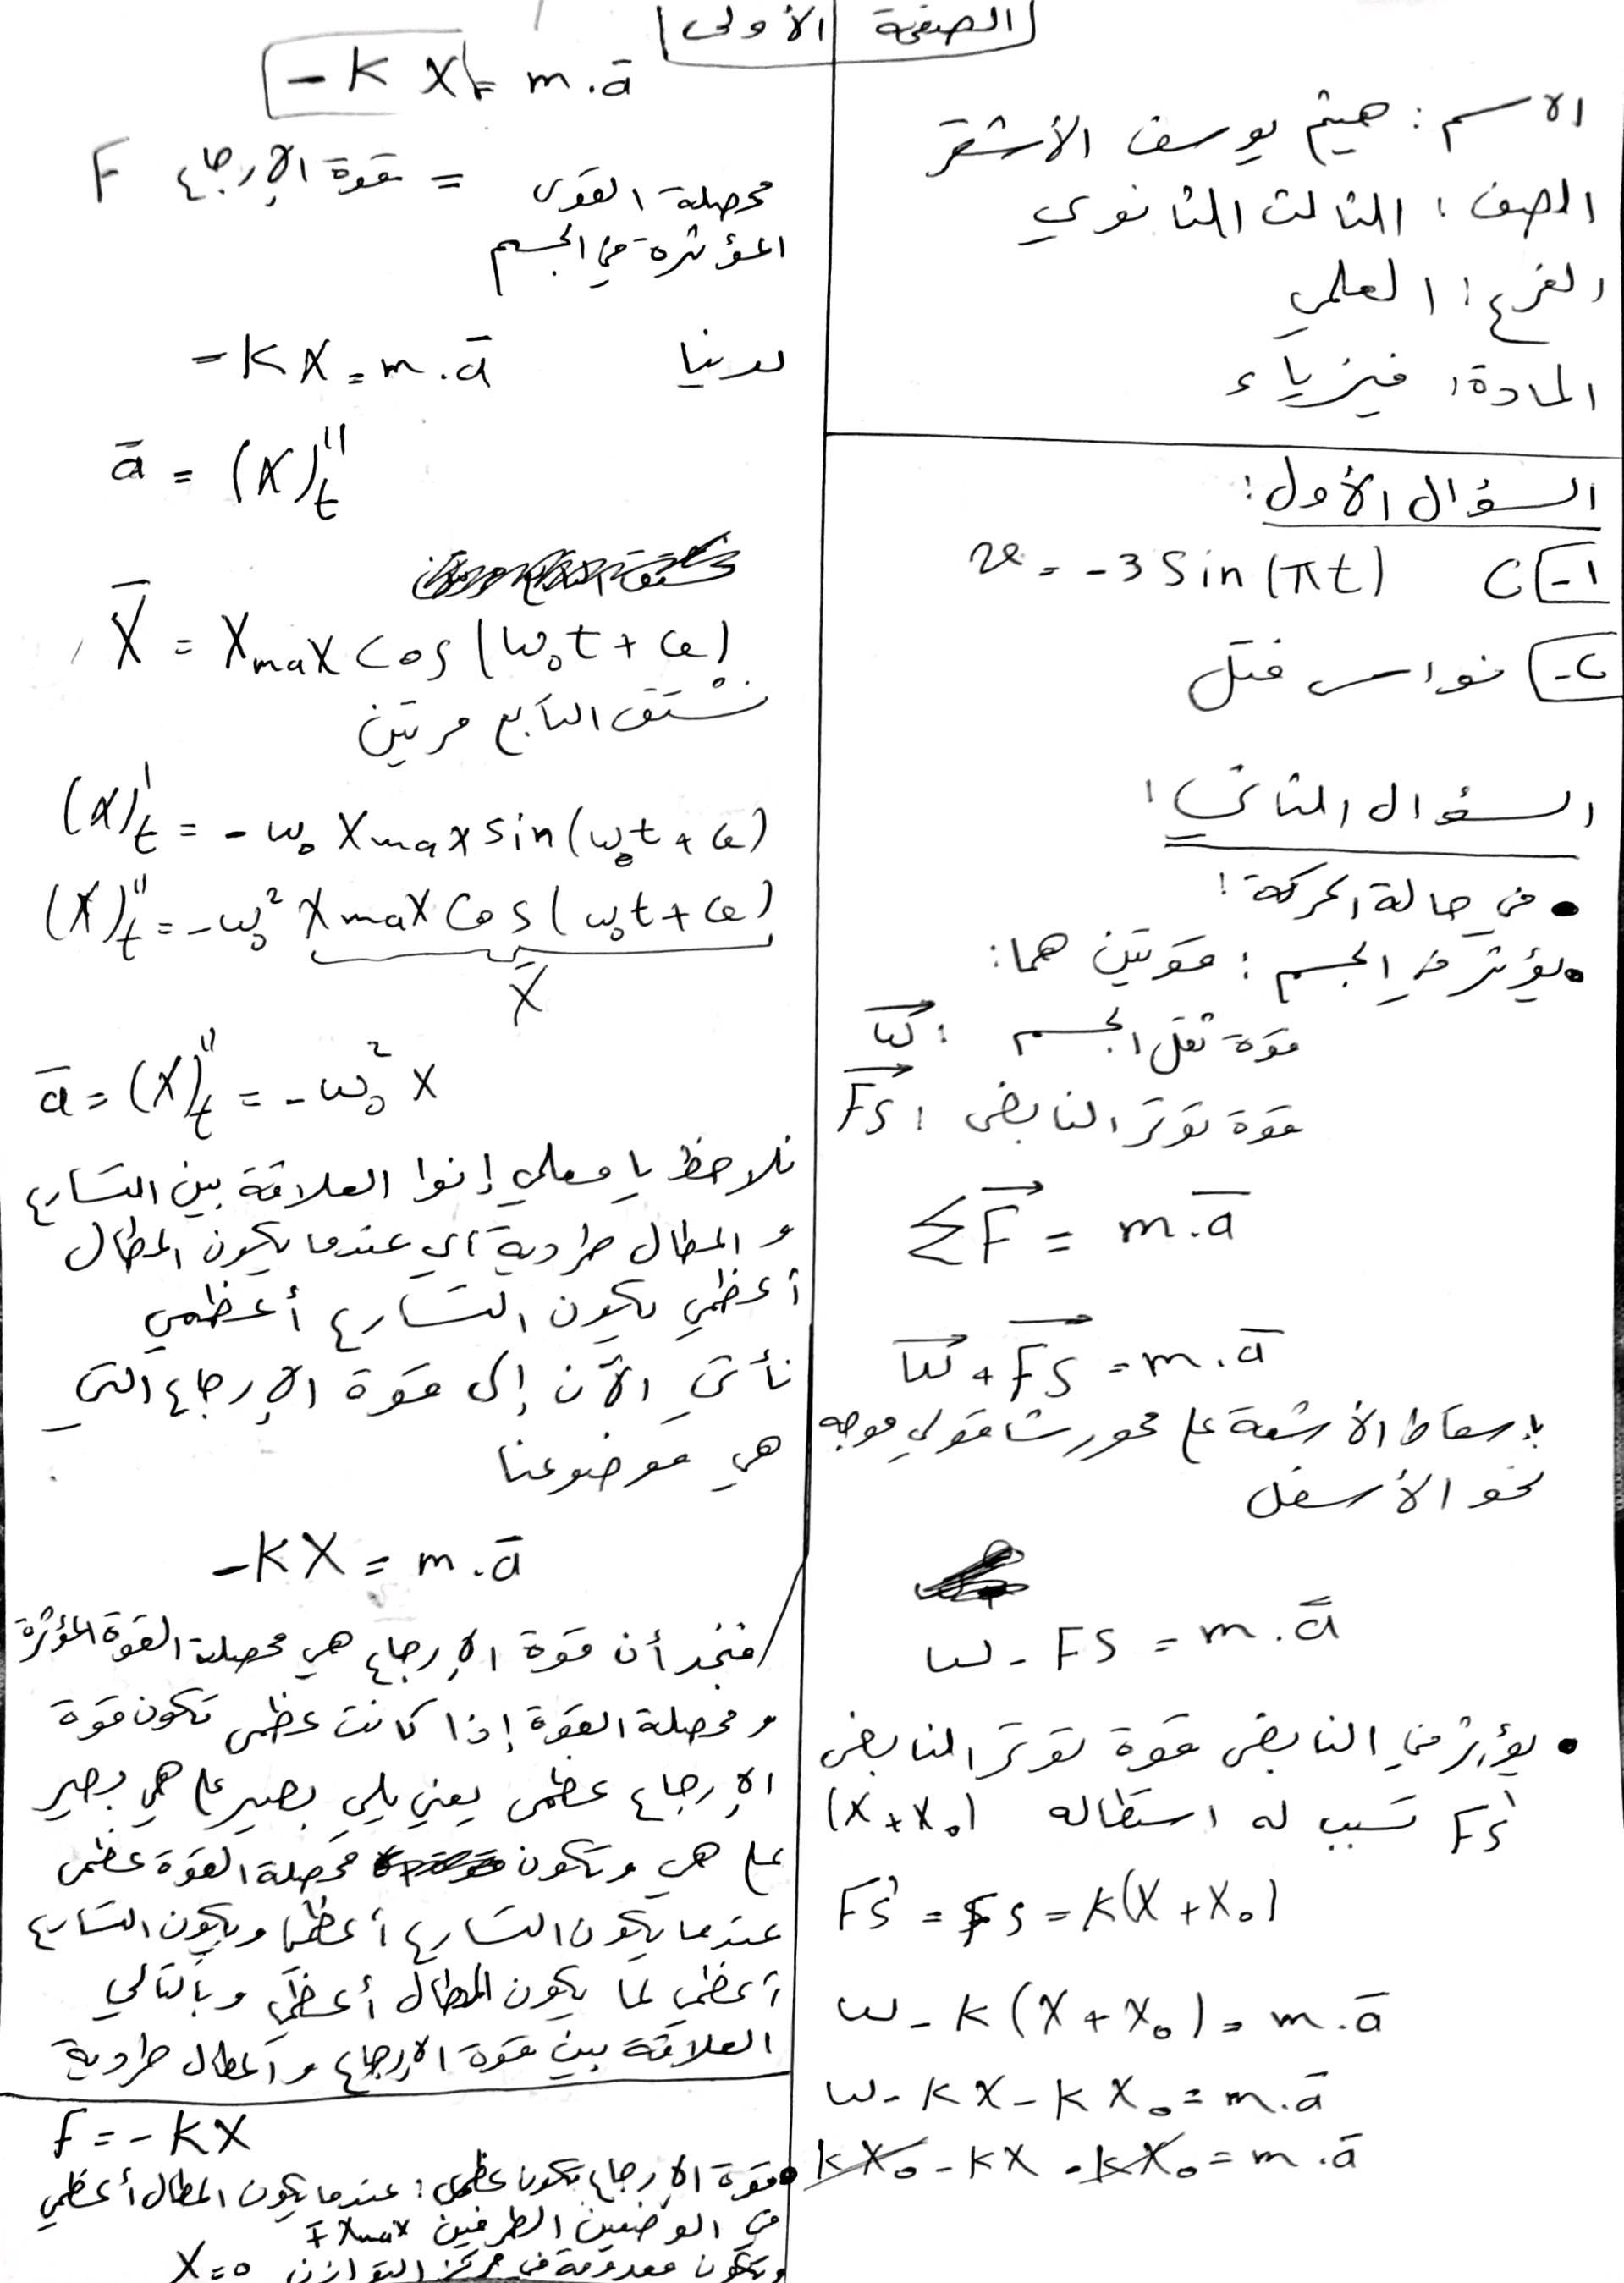 الصفحة الأولى
الاسم: هيثم يوسف الأشقر
الصف: الثالث الثانوي
الفرع: العلمي
المادة: فيزياء
السؤال الأول:
1- C v = -3 Sin (πt)
2- نواس فتل
السؤال الثاني:
• في حالة الحركة:
• يؤثر في الجسم: قوتين هما:
قوة ثقل الجسم: W⃗
قوة توتر النابض: F⃗s
∑F⃗ = m.a̅
W⃗ + F⃗s = m.a̅
بإسقاط الأشعة على محور شاقولي موجه
نحو الأسفل
W - Fs = m.a̅
• يؤثر في النابض قوة توتر النابض
Fs' تسبب له استطاله (X+X₀)
Fs' = Fs = k(X+X₀)
W - k(X+X₀) = m.a̅
W - kX - kX₀ = m.a̅
kX₀ - kX - kX₀ = m.a̅
-kX = m.a̅
محصلة القوى = قوة الإرجاع F
المؤثرة في الجسم
لدينا -kX = m.a̅
a̅ = (X)''t
X̅ = Xmax Cos (ω₀t + φ)
نشتق التابع مرتين
(X)'t = -ω₀ Xmax sin (ω₀t + φ)
(X)''t = -ω₀² Xmax Cos (ω₀t + φ)
X
a̅ = (X)''t = -ω₀² X
نلاحظ يا معلمي إنوا العلاقة بين التسارع
و المطال طردية أي عندما يكون المطال
أعظمي يكون التسارع أعظمي
نأتي الآن إلى قوة الإرجاع التي
هي موضوعنا
-kX = m.a̅
فنجد أن قوة الإرجاع هي محصلة القوة المؤثرة
و محصلة القوة إذا كانت عظمى تكون قوة
الإرجاع عظمى يعني يلي بصير على هي بصير
على هي وتكون محصلة القوة عظمى
عندما يكون التسارع أعظمي ويكون التسارع
أعظمي لما يكون المطال أعظمي وبالتالي
العلاقة بين قوة الإرجاع والمطال طردية
F = -kX
• قوة الإرجاع تكون عظمى: عندما يكون المطال أعظمي
في الوضعين الطرفين ∓Xmax
وتكون معدومة في مركز التوازن X=0